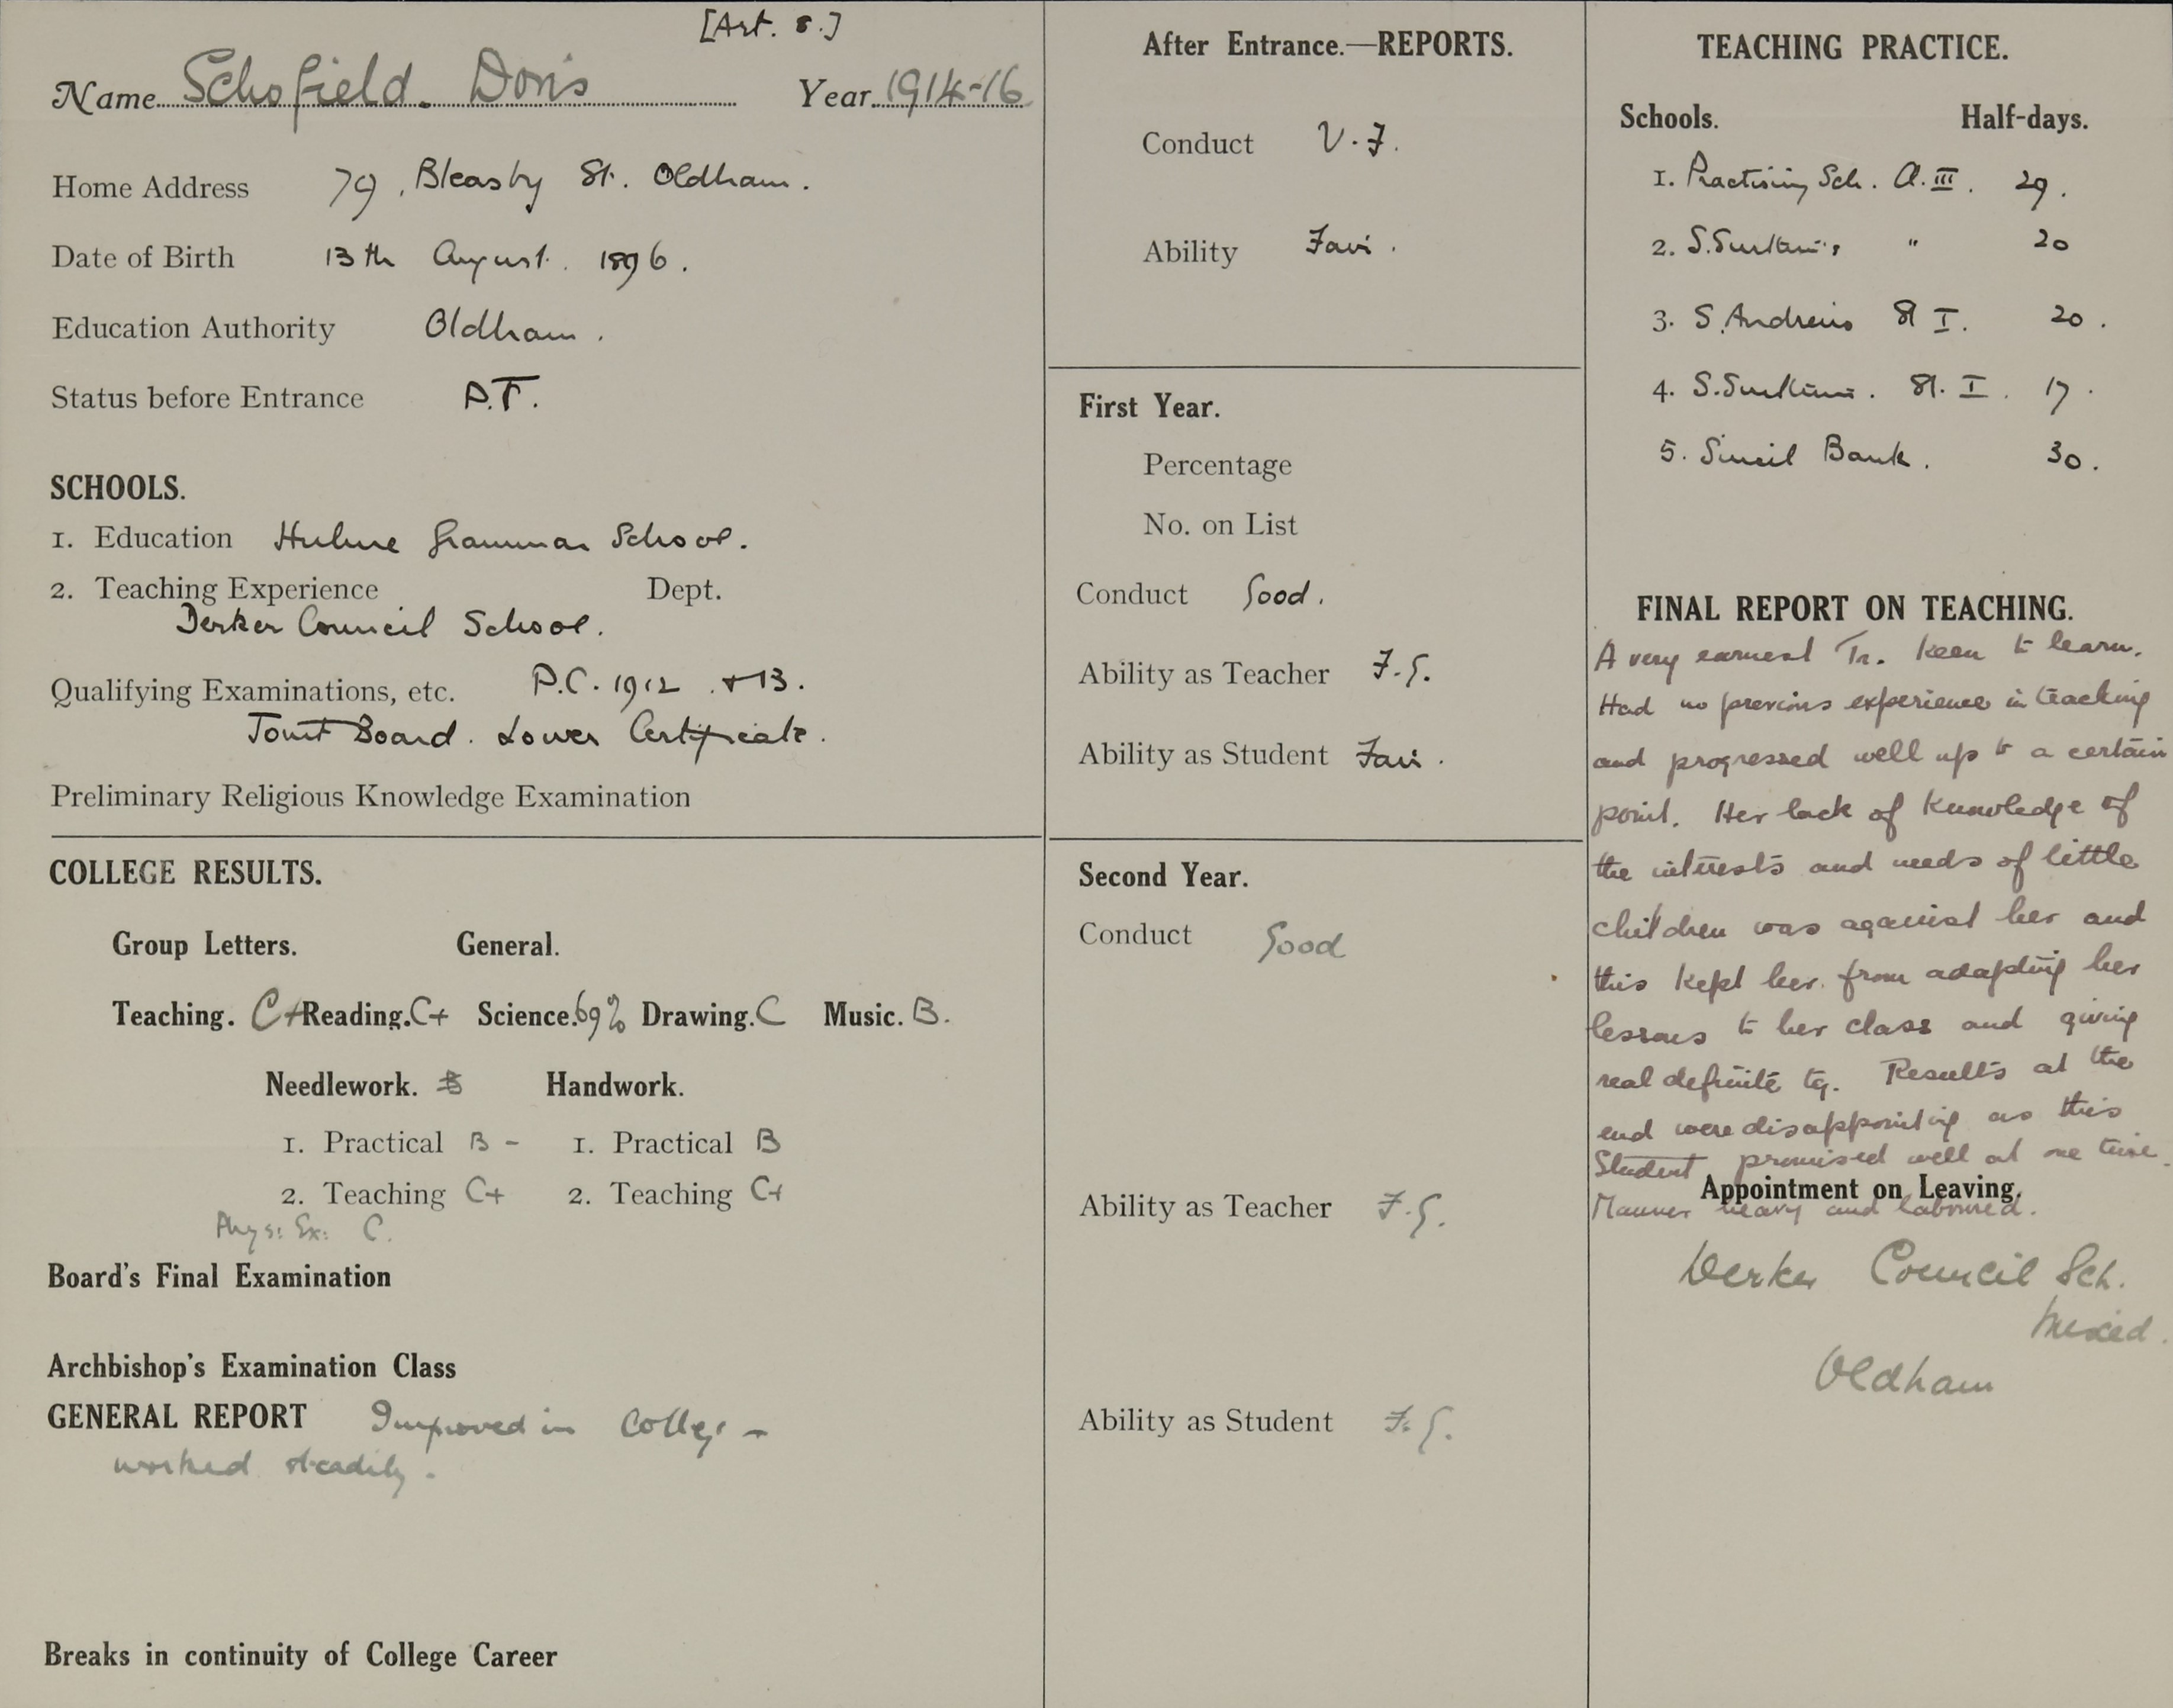 [Art. 8.]
Name Schofield. Doris Year 1914-16
Home Address 79, Bleasby St. Oldham.
Date of Birth 13th August. 1896.
Education Authority Oldham.
Status before Entrance P.T.
SCHOOLS.
1. Education Hulme Grammar School.
2. Teaching Experience Dept.
Derker Council School.
Qualifying Examinations, etc. P.C. 1912 + 13.
Joint Board. Lower Certificate.
Preliminary Religious Knowledge Examination
COLLEGE RESULTS.
Group Letters. General.
Teaching. C+ Reading. C+ Science. 69% Drawing. C Music. B.
Needlework. Handwork.
1. Practical B - 1. Practical B
2. Teaching C+ 2. Teaching C+
Phys: Ex: C.
Board's Final Examination
Archbishop's Examination Class
GENERAL REPORT Improved in College -
worked steadily.
Breaks in continuity of College Career
After Entrance.—REPORTS.
Conduct V.F.
Ability Fair.
First Year.
Percentage
No. on List
Conduct Good.
Ability as Teacher F.G.
Ability as Student Fair.
Second Year.
Conduct Good
Ability as Teacher F.G.
Ability as Student F.G.
TEACHING PRACTICE.
Schools. Half-days.
1. Practising Sch. A. III. 29.
2. S. Swithin's " 20
3. S. Andrews St I. 20.
4. S. Swithins. St. I. 17.
5. Sincil Bank. 30.
FINAL REPORT ON TEACHING.
A very earnest Tr. Keen to learn.
Had no previous experience in teaching
and progressed well up to a certain
point. Her lack of knowledge of
the interests and needs of little
children was against her and
this kept her from adapting her
lessons to her class and giving
real definite tg. Results at the
end were disappointing as this
Student promised well at one time.
Manner heavy and laboured.
Appointment on Leaving.
Derker Council Sch.
Mixed.
Oldham